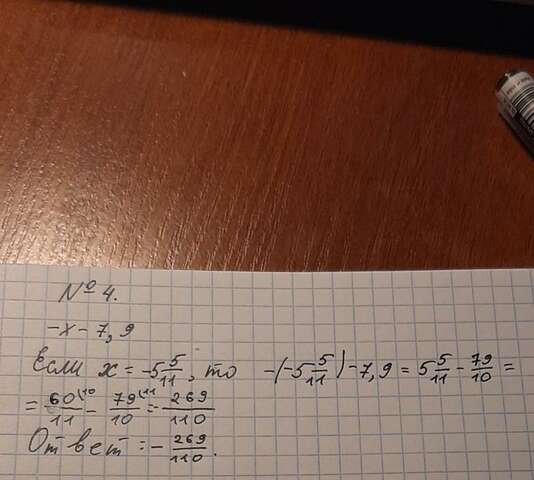 № 4.
-x - 7,9
Если x = -5 5/11, то -(-5 5/11) - 7,9 = 5 5/11 - 79/10 =
= 60\10/11 - 79\11/10 = -269/110
Ответ: -269/110.